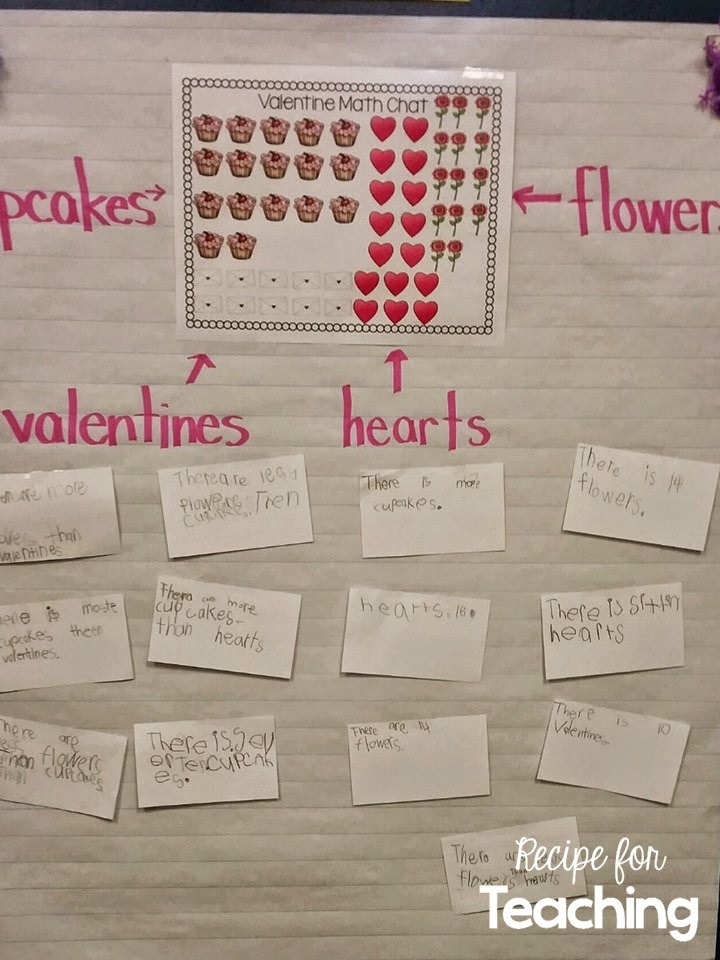 Valentine Math Chat
pcakes
flower
valentines
hearts
more
than
valentines
There are less
flowers
cupcakes. Then
There is more
cupcakes.
There is 14
flowers.
here is moste
cupcakes theen
valentines.
There are more
cupcakes
than hearts
hearts.16.
There is sixten
hearts
here are
less
flowers
than cupcakes
There is.sev
enteecupcak
es.
There are 14
flowers.
There is 10
Valentines
There
flowers than hearts
Recipe for
Teaching